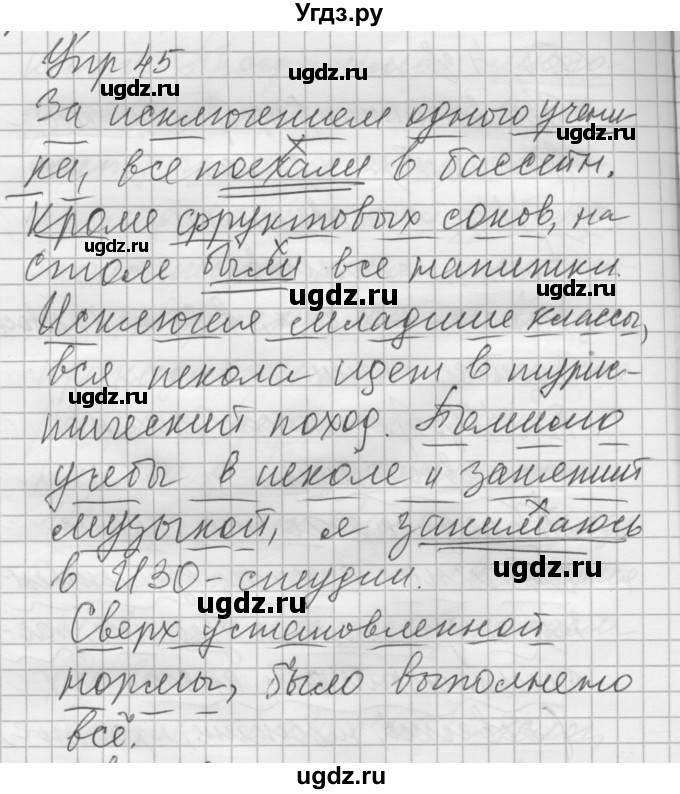 Угдз.ру
Упр 45
ugdz.ru
ugdz.ru
За исключением одного учени-
ugdz.ru
ка, все поехали в бассейн.
Кроме фруктовых соков, на
ugdz.ru
столе были все напитки.
ugdz.ru
ugdz.ru
Исключая младшие классы,
вся школа идет в турис-
ugdz.ru
ugdz.ru
тический поход. Помимо
учебы в школе и занятий
ugdz.ru
музыкой, я занимаюсь
ugdz.ru
в ИЗО-студии.
ugdz.ru
Сверх установленной
ugdz.ru
нормы, было выполнено
всё.
ugdz.ru
ugdz.ru